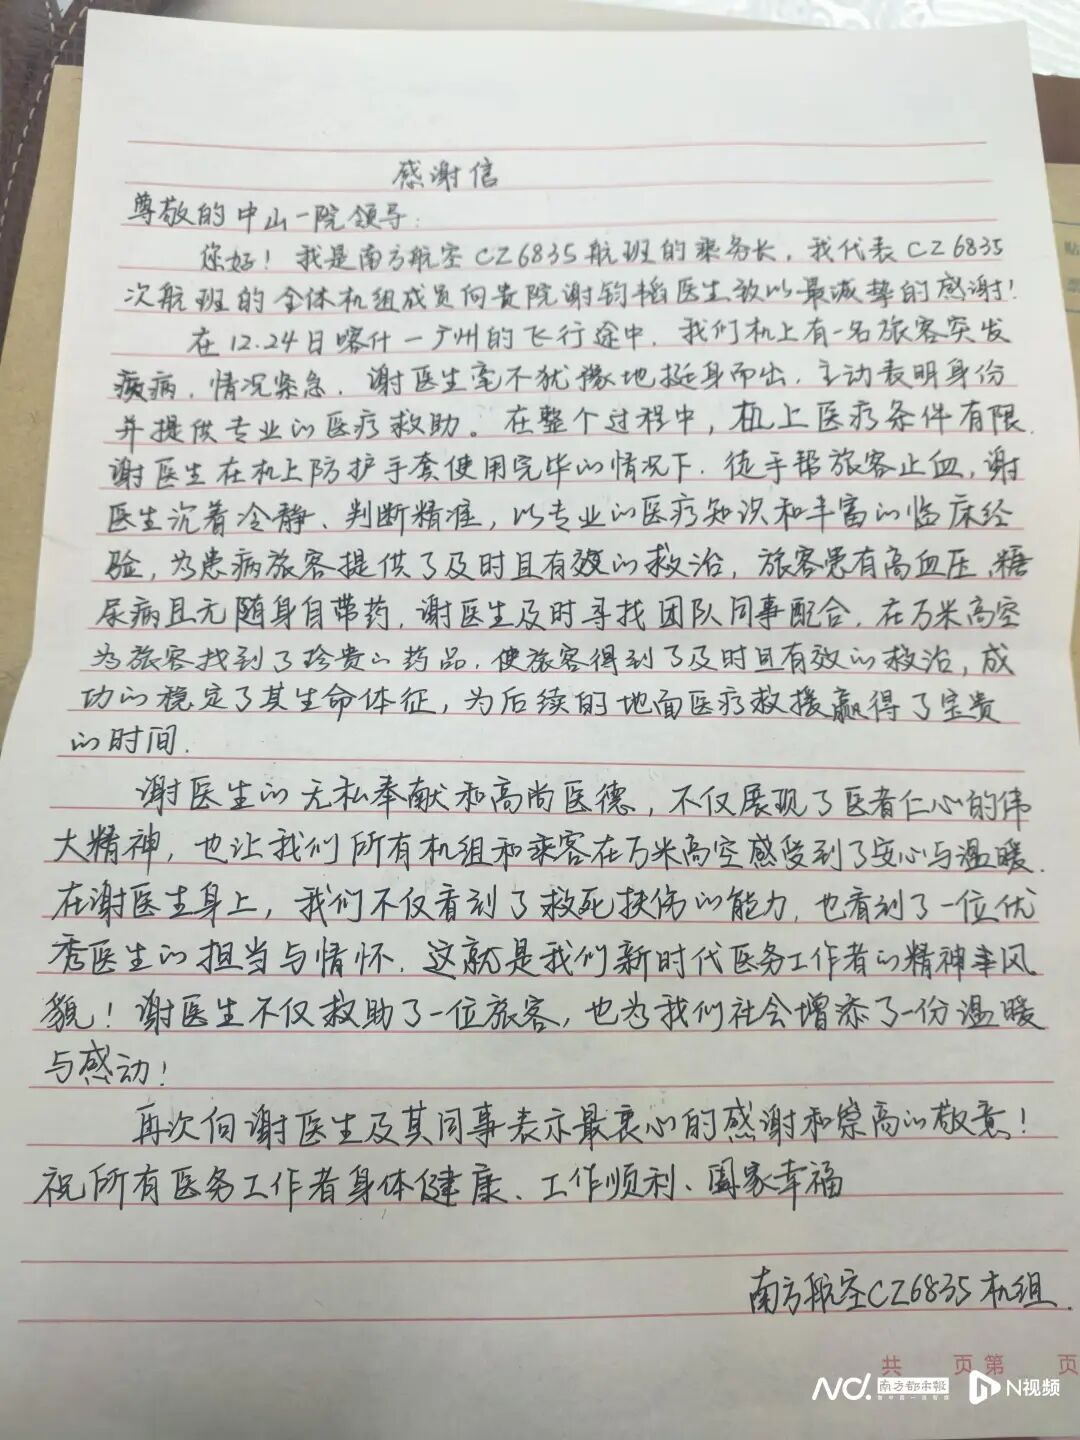 感谢信
尊敬的中山一院领导:
您好！我是南方航空CZ6835航班的乘务长，我代表CZ6835
次航班的全体机组成员向贵院谢钧韬医生致以最诚挚的感谢！
在12.24日喀什一广州的飞行途中，我们机上有一名旅客突发
疾病，情况紧急，谢医生毫不犹豫地挺身而出，主动表明身份
并提供专业的医疗救助。在整个过程中，机上医疗条件有限，
谢医生在机上防护手套使用完毕的情况下，徒手帮旅客止血，谢
医生沉着冷静、判断精准，以专业的医疗知识和丰富的临床经
验，为患病旅客提供了及时且有效的救治，旅客患有高血压、糖
尿病且无随身自带药，谢医生及时寻找团队同事配合，在万米高空
为旅客找到了珍贵的药品，使旅客得到了及时且有效的救治，成
功的稳定了其生命体征，为后续的地面医疗救援赢得了宝贵
的时间.
谢医生的无私奉献和高尚医德，不仅展现了医者仁心的伟
大精神，也让我们所有机组和乘客在万米高空感受到了安心与温暖.
在谢医生身上，我们不仅看到了救死扶伤的能力，也看到了一位优
秀医生的担当与情怀，这就是我们新时代医务工作者的精神丰风
貌！谢医生不仅救助了一位旅客，也为我们社会增添了一份温暖
与感动！
再次向谢医生及其同事表示最衷心的感谢和崇高的敬意！
祝所有医务工作者身体健康、工作顺利、阖家幸福
南方航空CZ6835机组.
共 页 第 页
N. 南方都市报 N视频